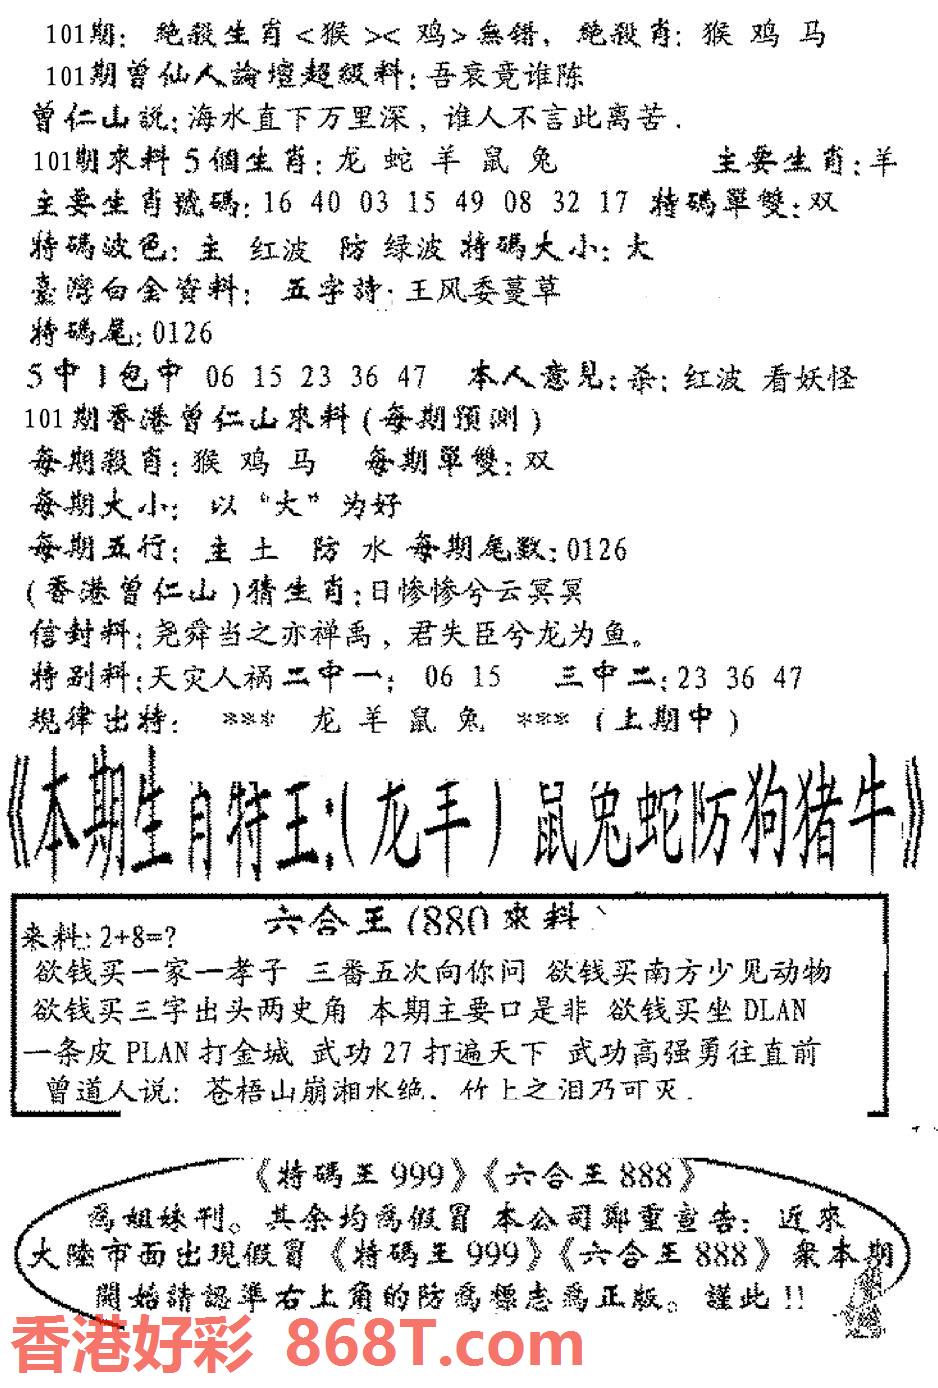 101期：绝殺生肖<猴><鸡>無错，绝殺肖：猴 鸡 马
101期曾仙人論壇超級料：吾哀竟谁陈
曾仁山説：海水直下万里深，谁人不言此离苦.
101期來料 5 個生肖：龙 蛇 羊 鼠 兔 主要生肖：羊
主要生肖號碼：16 40 03 15 49 08 32 17 特碼單雙：双
特碼波色：主 红波 防 绿波 特碼大小：大
臺灣白金資料： 五字詩：王风委蔓草
特碼尾：0126
5 中 1 包中 06 15 23 36 47 本人意見：杀：红波 看妖怪
101期香港曾仁山來料(每期預測)
每期殺肖：猴 鸡 马 每期單雙：双
每期大小： 以“大”为好
每期五行：主 土 防 水 每期尾数：0126
(香港曾仁山)猜生肖：日惨惨兮云冥冥
信封料：尧舜当之亦禅禹，君失臣兮龙为鱼。
特别料：天灾人祸二中一： 06 15 三中二：23 36 47
規律出特： *** 龙 羊 鼠 兔 *** (上期中)
《本期生肖特王：(龙羊) 鼠兔蛇防狗猪牛》
六合王(880來料)
来料：2+8=?
欲钱买一家一孝子 三番五次向你问 欲钱买南方少见动物
欲钱买三字出头两史角 本期主要口是非 欲钱买坐DLAN
一条皮PLAN打金城 武功27打遍天下 武功高强勇往直前
曾道人说：苍梧山崩湘水绝．竹上之泪乃可灭．
《特碼王999》《六合王888》
為姐妹刊。其余均為假冒 本公司鄭重宣告：近來
大陸市面出現假冒《特碼王999》《六合王888》衆本期
開始請認準右上角的防為標志為正版。謹此!!
香港好彩 868T.com